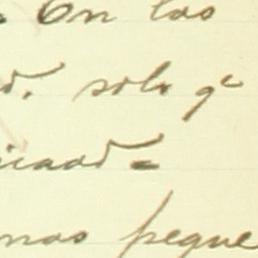 . En las
d. solo qe
icaad=
nas peque